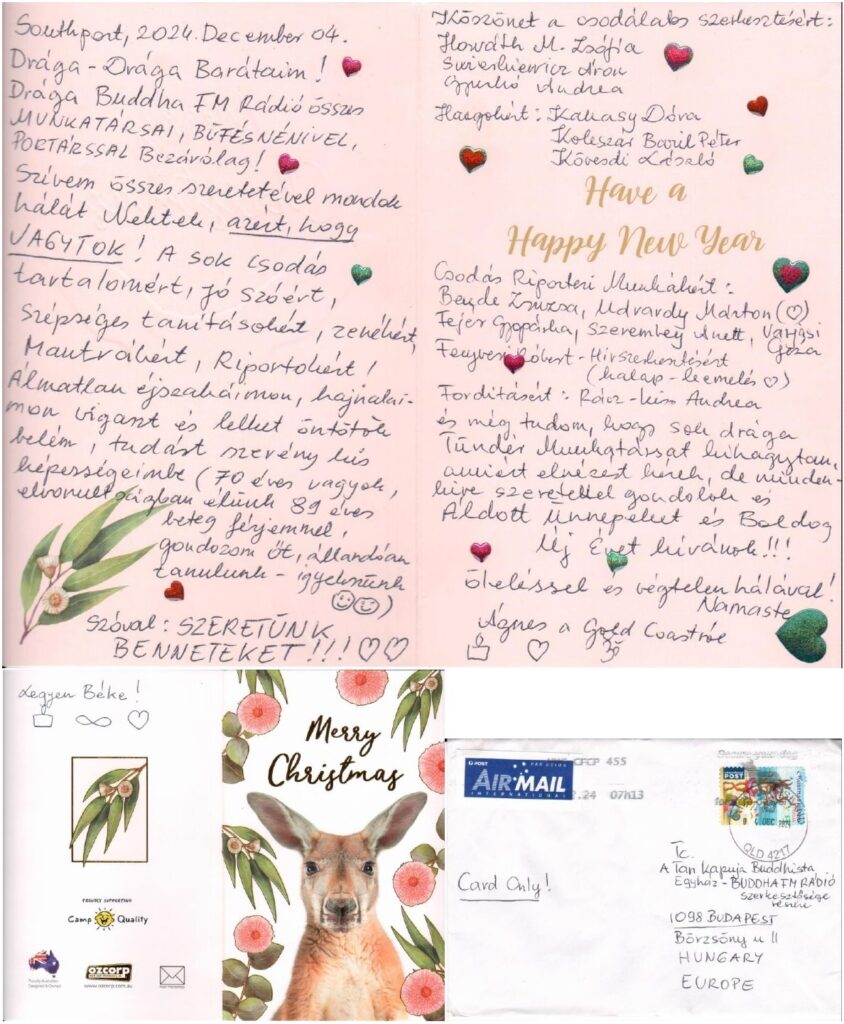 Southport, 2024. December 04.
Drága-Drága Barátaim!
Drága Buddha FM Rádió összes
MUNKATÁRSAI, BÜFÉSNÉNIVEL,
PORTÁRSSAL Bezárólag!
Szívem összes szeretetével mondok
hálát Nektek, azért, hogy
VAGYTOK! A sok csodás
tartalomért, jó szóért,
szépséges tanításokért, zenékért,
Mantrákért, Riportokért!
Álmatlan éjszakáimon, hajnalai-
mon vigaszt és lelket öntötök
belém, tudást szerény kis
képességeimbe (70 éves vagyok,
elvonultságban élünk 89 éves
beteg férjemmel,
gondozom őt, állandóan
tanulunk - igyekszünk
)
Szóval: SZERETÜNK
BENNETEKET!!!
Köszönet a csodálatos szerkesztésért:
Horváth M. Zsófia
Áron
Andrea
Hangokért: Kakasy Dóra
Koleszár Bazil Péter
Kövesdi László
Have a
Happy New Year
Csodás Riporteri Munkákért:
Bende Zsuzsa, Udvardy Márton (♡)
Fejér Gyopárka, Szerembey Anett, Vargyasi
Géza
Fenyvesi Róbert - Hírszerkesztésért
(kalap-leemelés ♡)
Fordításért: Rácz-Kiss Andrea
és még tudom, hogy sok drága
Tündér Munkatársat kihagytam,
amiért elnézést kérek, de minden-
kire szeretettel gondolok és
Áldott Ünnepeket és Boldog
Új Évet kívánok!!!
Öleléssel és végtelen hálával!
Namaste
Ágnes a Gold Coastról
ॐ
Legyen Béke!
Merry
Christmas
PROUDLY SUPPORTING
Camp Quality
Proudly Australian
Designed & Owned
ozcorp
www.ozcorp.com.au
POST
PAR AVION
AIR MAIL
INTERNATIONAL
CFCP 455
.24 07h13
POST
DEC 2024
QLD 4217
Card Only!
Tc.
A Tan Kapuja Buddhista
Egyház - BUDDHA FM RÁDIÓ
szerkesztősége
részére
1098 BUDAPEST
Börzsöny u 11
HUNGARY
EUROPE